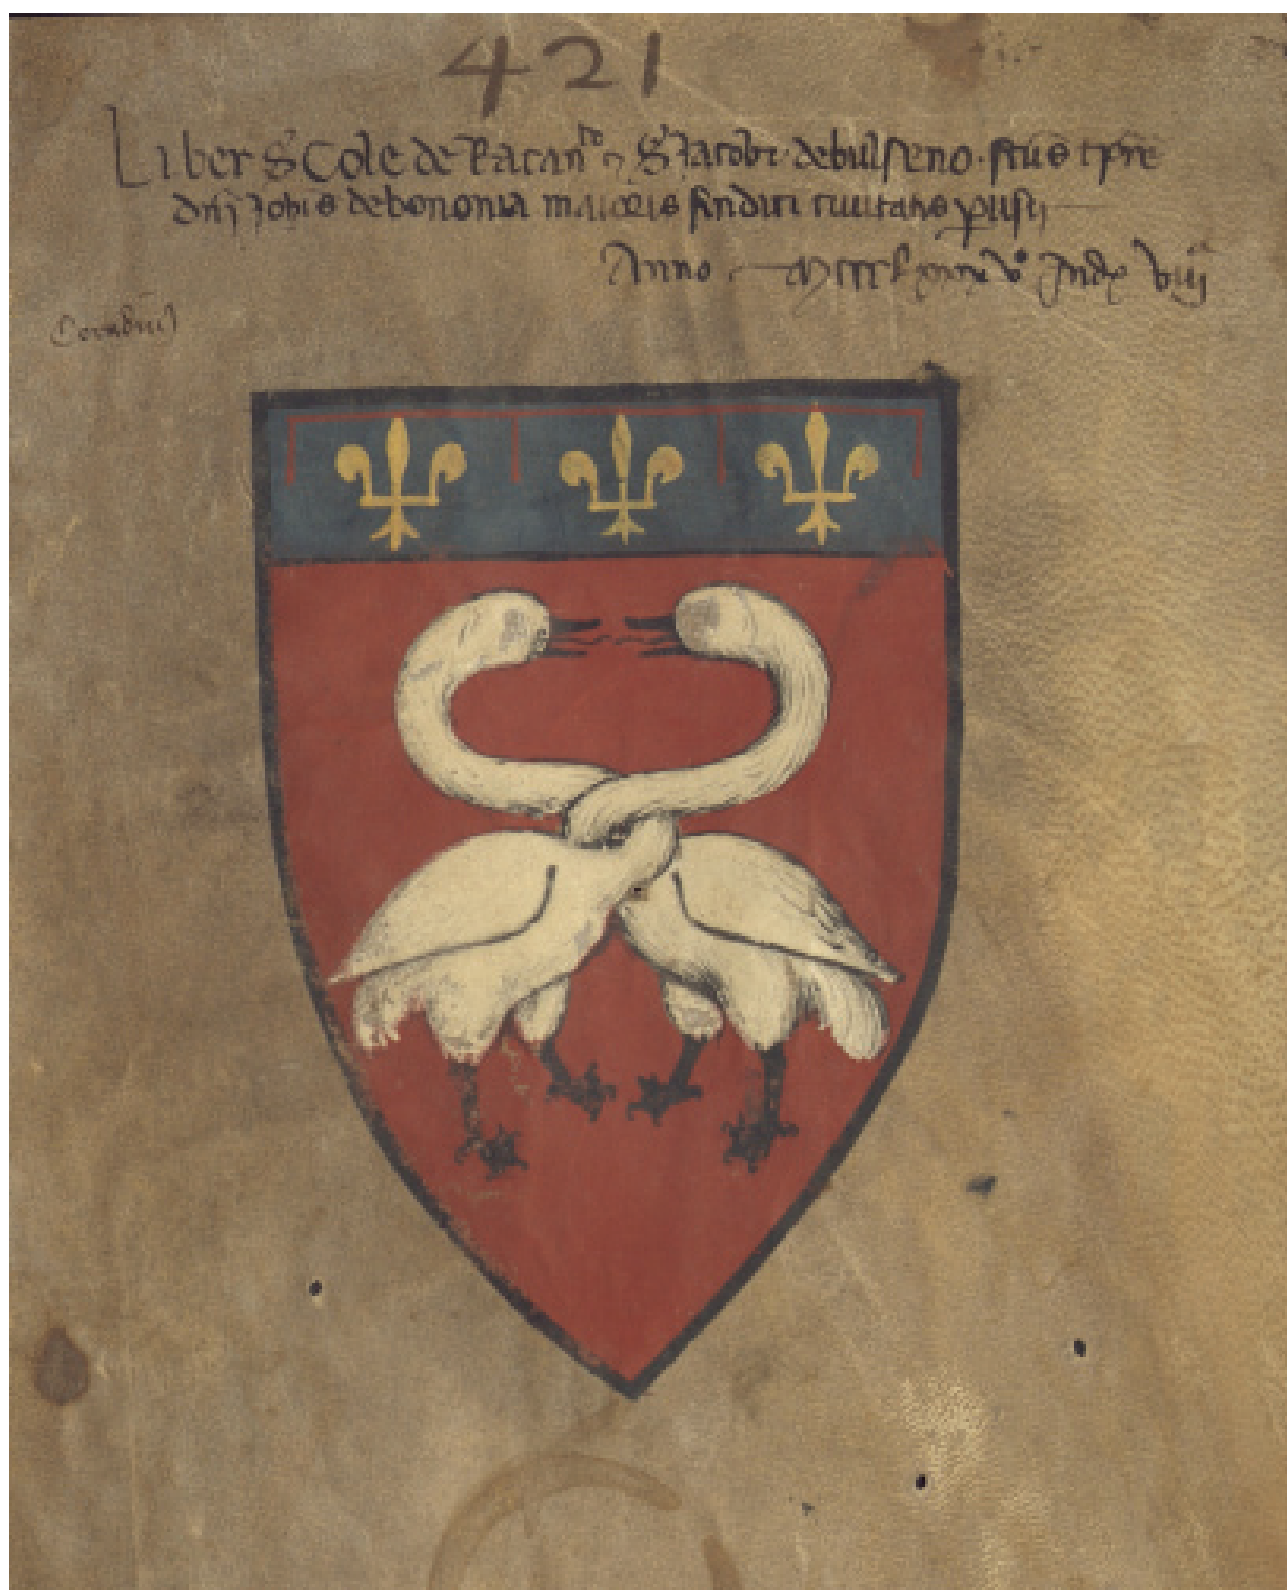 421
Liber S Cole de Racan^to S Jacobi debulseno ftus tpre
dnj Johis de bononia maioris sindici civitatis perusij
Anno Mccclxxxv° Indx viij^a